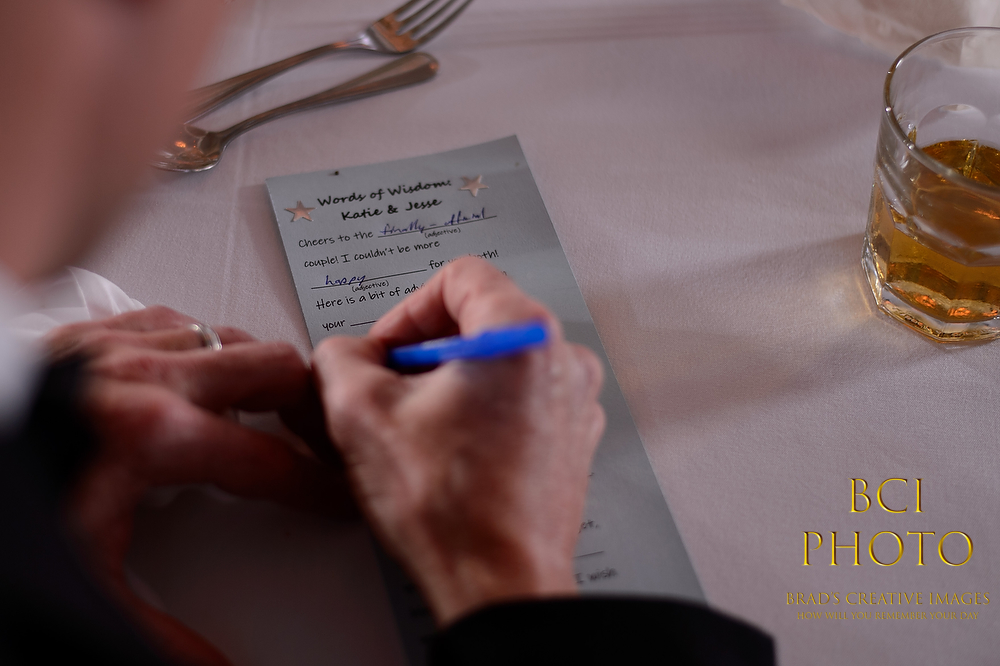 Words of Wisdom:
Katie & Jesse
Cheers to the finally - official
(adjective)
couple! I couldn't be more
happy for you both!
(adjective)
Here is a bit of
your
I wish
BCI
PHOTO
BRAD'S CREATIVE IMAGES
HOW WILL YOU REMEMBER YOUR DAY